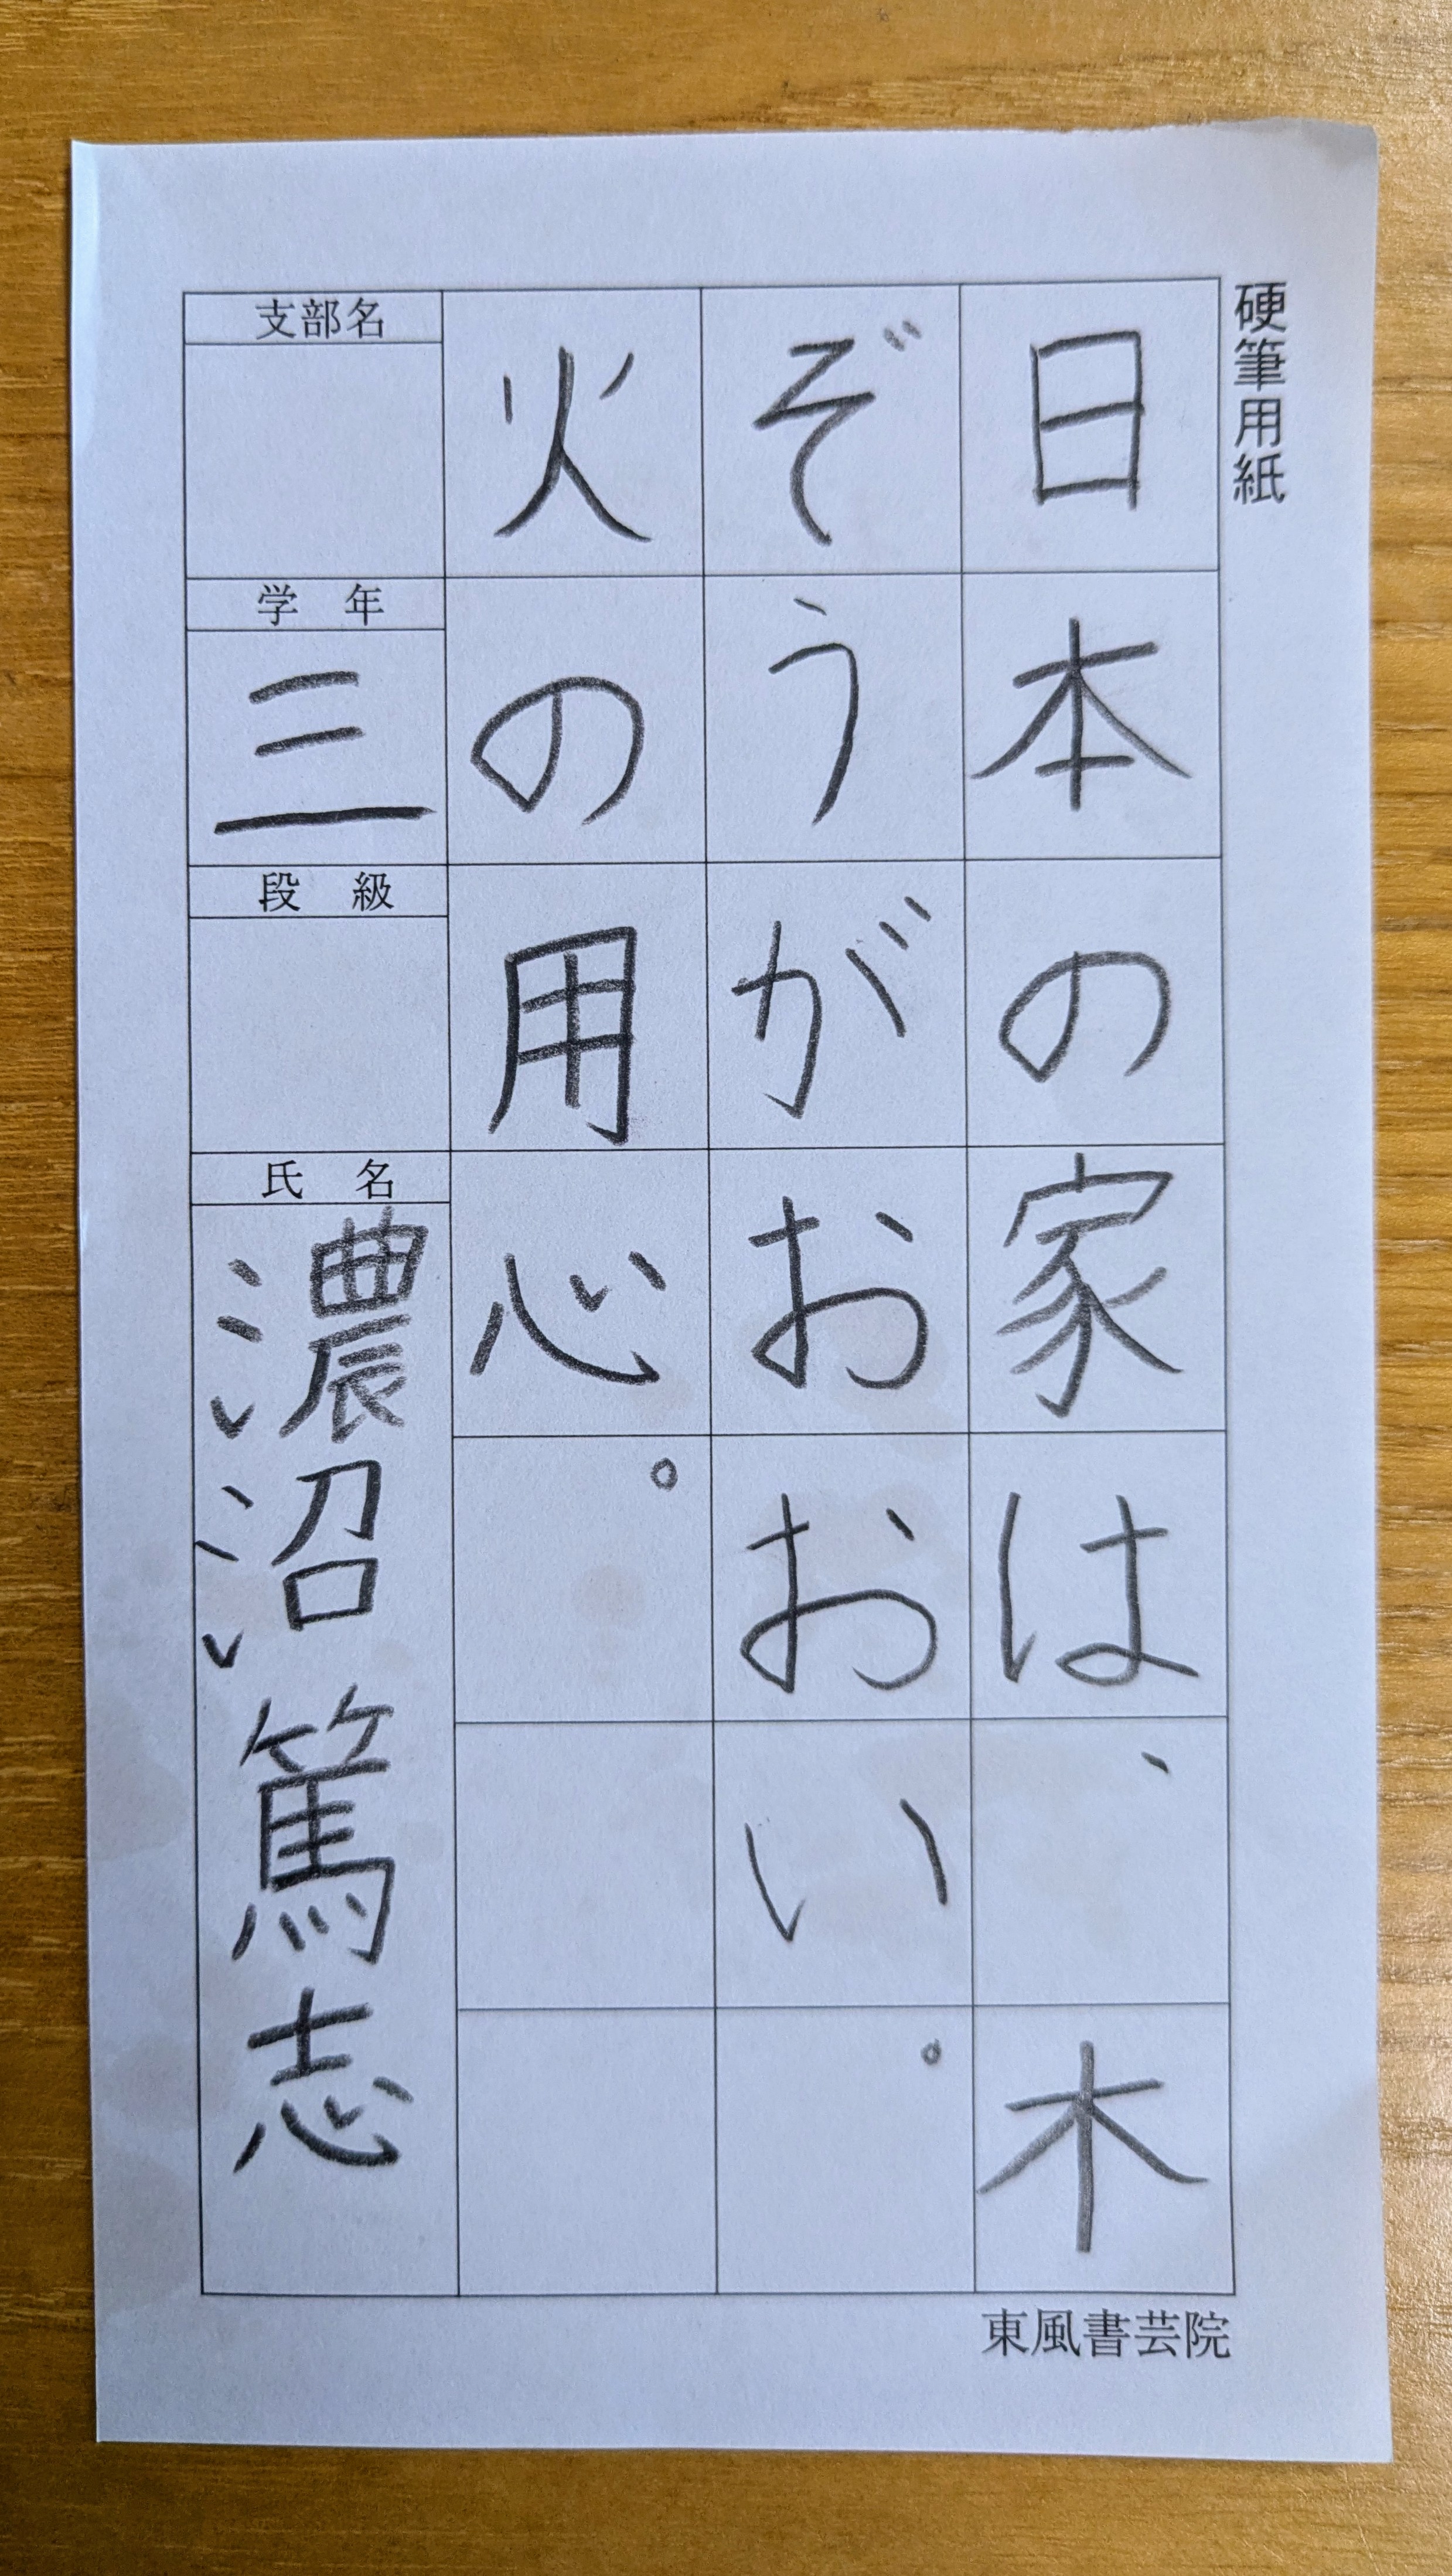 硬筆用紙
日本の家は、木
ぞうがおおい。
火の用心。
支部名
学年
三
段級
氏名
濃沼篤志
東風書芸院